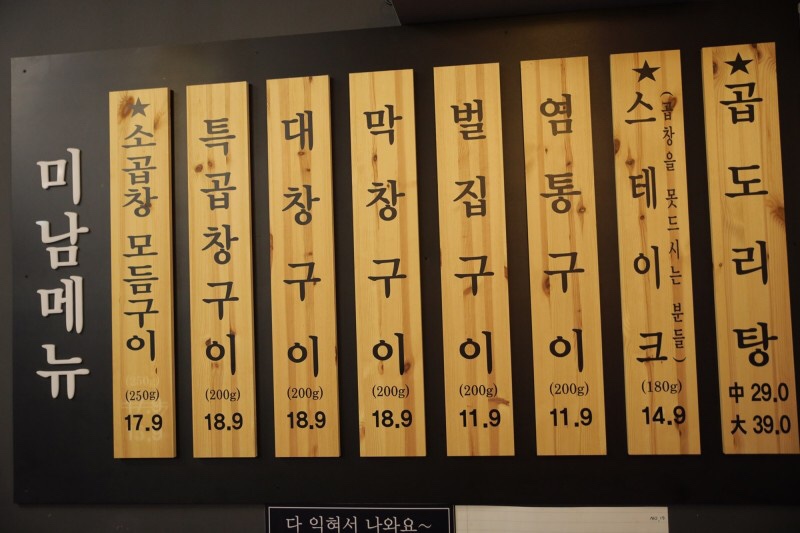 미남메뉴
★소곱창 모듬구이
(250g)
17.9
특곱창구이
(200g)
18.9
대창구이
(200g)
18.9
막창구이
(200g)
18.9
벌집구이
(200g)
11.9
염통구이
(200g)
11.9
★스테이크
(곱창을 못드시는 분들)
(180g)
14.9
★곱도리탕
中 29.0
大 39.0
다 익혀서 나와요~